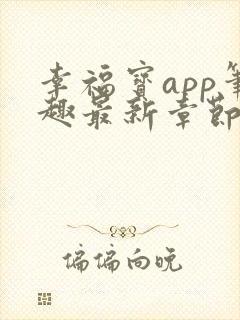 幸福宝app笔
趣最新章节
偏偏向晚